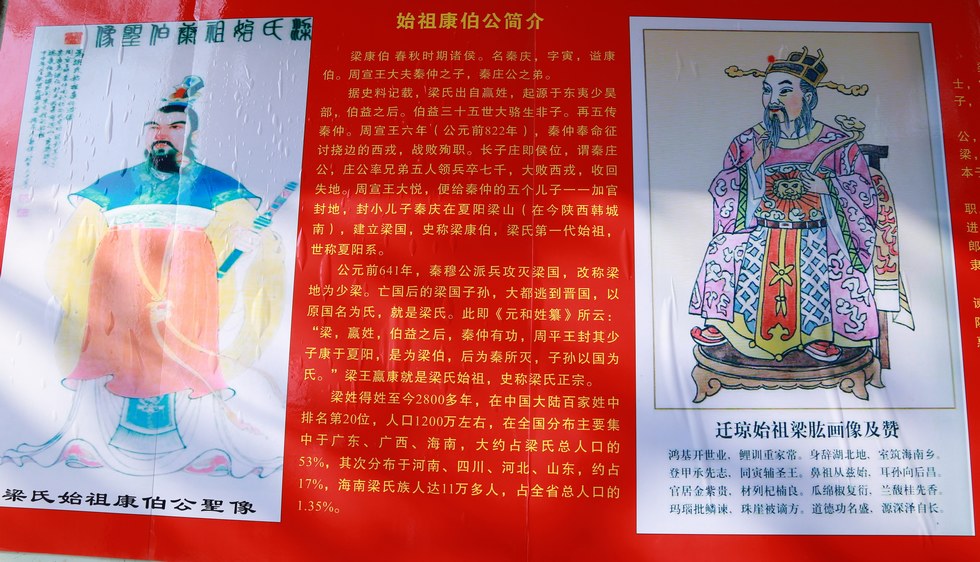 梁氏始祖康伯聖像
梁氏始祖康伯公聖像
始祖康伯公简介
梁康伯 春秋时期诸侯。名秦庆，字寅，谥康
伯。周宣王大夫秦仲之子，秦庄公之弟。
据史料记载，梁氏出自嬴姓，起源于东夷少昊
部，伯益之后。伯益三十五世大骆生非子。再五传
秦仲。周宣王六年（公元前822年），秦仲奉命征
讨挠边的西戎，战败殉职。长子庄即侯位，谓秦庄
公，庄公率兄弟五人领兵卒七千，大败西戎，收回
失地。周宣王大悦，便给秦仲的五个儿子一一加官
封地，封小儿子秦庆在夏阳梁山（在今陕西韩城
南），建立梁国，史称梁康伯，梁氏第一代始祖，
世称夏阳系。
公元前641年，秦穆公派兵攻灭梁国，改称梁
地为少梁。亡国后的梁国子孙，大都逃到晋国，以
原国名为氏，就是梁氏。此即《元和姓纂》所云：
“梁，嬴姓，伯益之后，秦仲有功，周平王封其少
子康于夏阳，是为梁伯，后为秦所灭，子孙以国为
氏。”梁王嬴康就是梁氏始祖，史称梁氏正宗。
梁姓得姓至今2800多年，在中国大陆百家姓中
排名第20位，人口1200万左右，在全国分布主要集
中于广东、广西、海南，大约占梁氏总人口的
53%，其次分布于河南、四川、河北、山东，约占
17%，海南梁氏族人达11万多人，占全省总人口的
1.35%。
迁琼始祖梁肱画像及赞
鸿基开世业，鲤训重家常。身辞湖北地，室筑海南乡。
登甲承先志，同寅辅圣王。鼻祖从兹始，耳孙向后昌。
官居金紫贵，材列杞楠良。瓜绵椒复衍，兰馥桂先香。
玛瑙批鳞谏，珠崖被谪方。道德功名盛，源深泽自长。
士，
子，
公，
梁
本
职
进
郎
隶